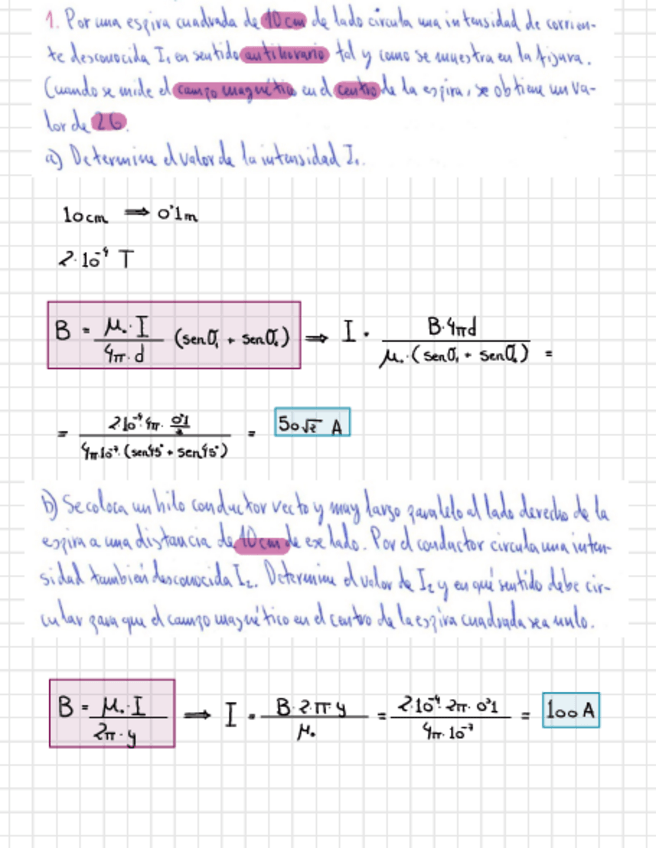 1. Por una espira cuadrada de 10 cm de lado circula una intensidad de corrien-
te desconocida I₁ en sentido antihorario tal y como se muestra en la figura.
Cuando se mide el campo magnético en el centro de la espira, se obtiene un va-
lor de 2G.
a) Determine el valor de la intensidad I₁.
10cm ⇒ 0'1m
2·10⁻⁴ T
B = μ₀·I / 4π·d (sen θ₁ + sen θ₂) ⇒ I = B·4πd / μ₀·(sen θ₁ + sen θ₂) =
= 2·10⁻⁴·4π·0'1/2 / 4π·10⁻⁷·(sen45° + sen45°) = 50√2 A
b) Se coloca un hilo conductor recto y muy largo paralelo al lado derecho de la
espira a una distancia de 10 cm de ese lado. Por el conductor circula una inten-
sidad también desconocida I₂. Determine el valor de I₂ y en qué sentido debe cir-
cular para que el campo magnético en el centro de la espira cuadrada sea nulo.
B = μ₀·I / 2π·y ⇒ I = B·2·π·y / μ₀ = 2·10⁻⁴·2π·0'1 / 4π·10⁻⁷ = 100 A